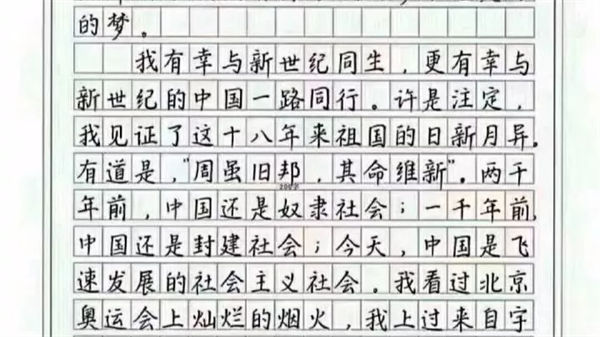 的梦。
我有幸与新世纪同生，更有幸与
新世纪的中国一路同行。许是注定，
我见证了这十八年来祖国的日新月异。
有道是，“周虽旧邦，其命维新”。两千
年前，中国还是奴隶社会；一千年前，
中国还是封建社会；今天，中国是飞
速发展的社会主义社会。我看过北京
奥运会上灿烂的烟火，我上过来自宇